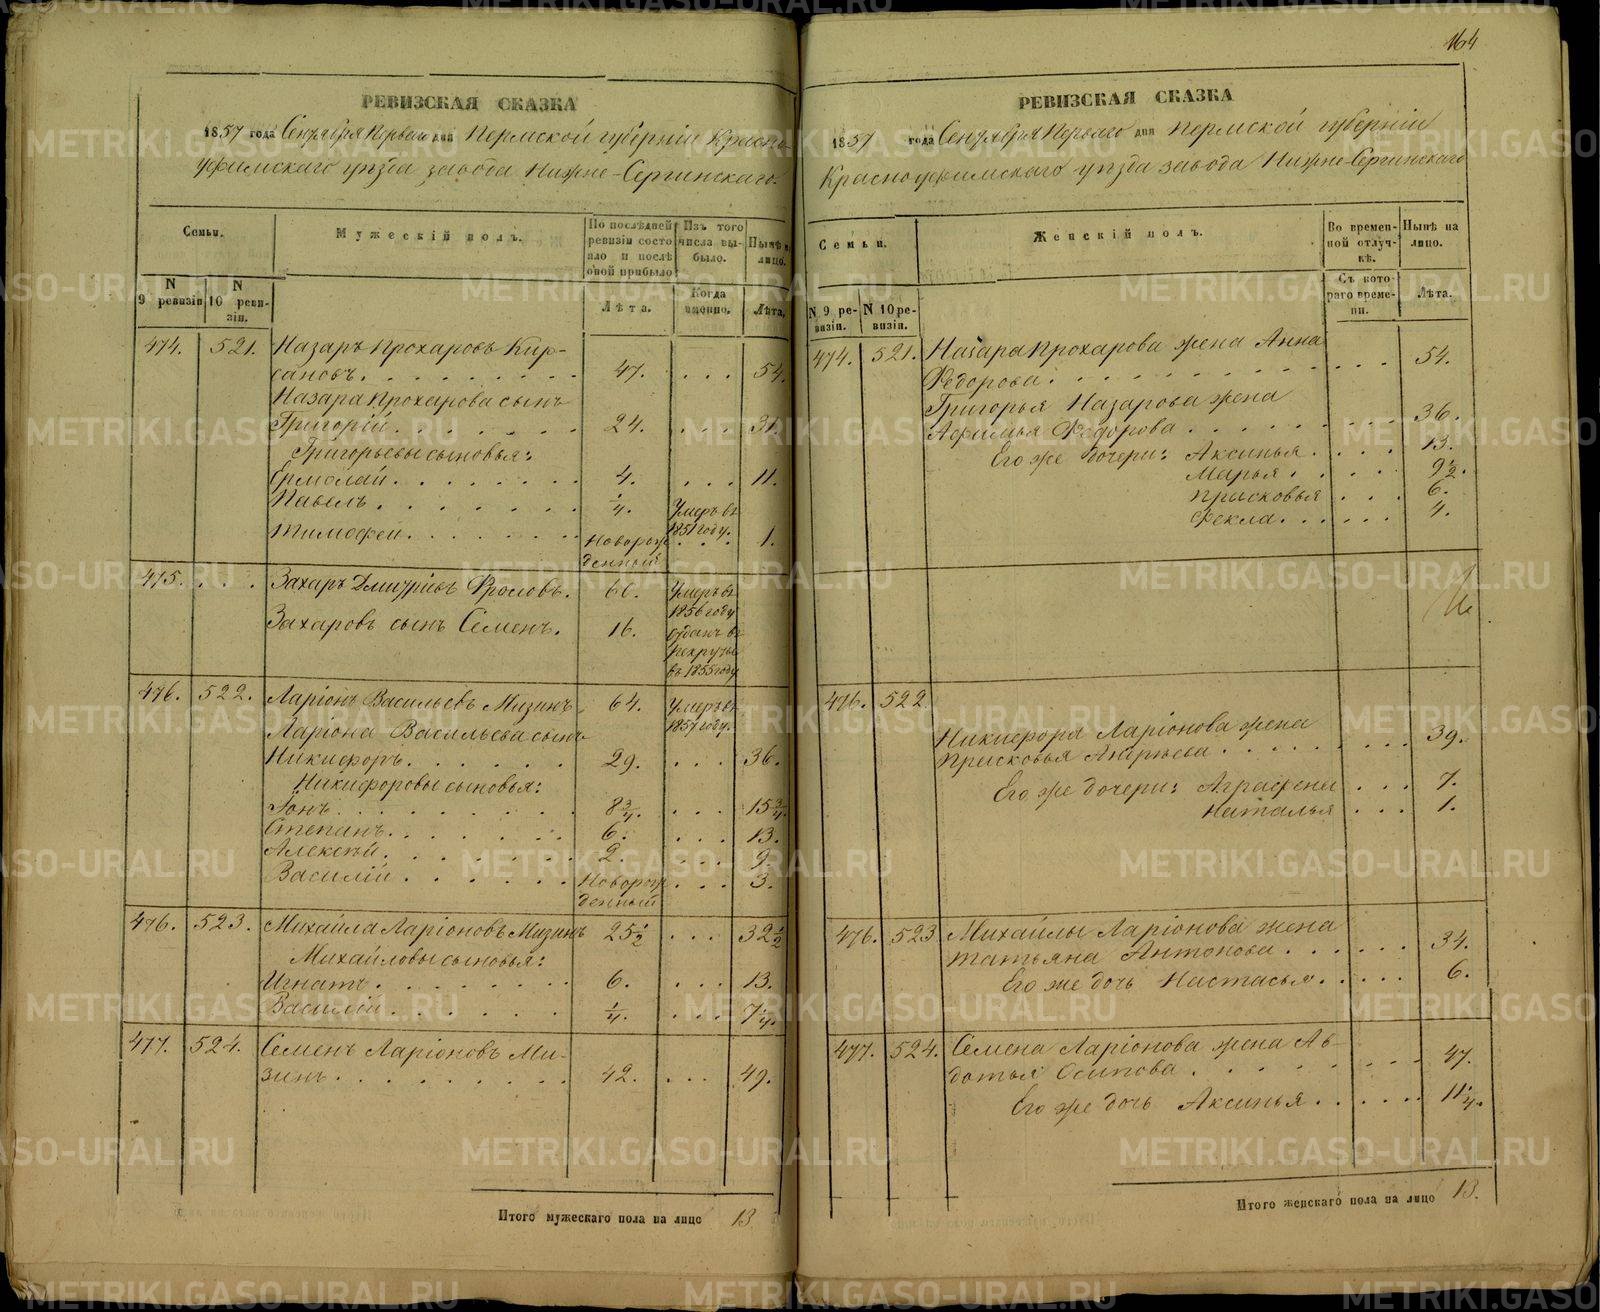 164
РЕВИЗСКАЯ СКАЗКА
1857 года Сентября Перваго дня Пермской губерніи Красно-
уфимскаго уѣзда завода Нижне-Сергинскаго.
Семьи.
Мужескій полъ.
По последней ревизіи состояло и послѣ оной прибыло
Изъ того числа выбыло.
Нынѣ на лицо.
N 9 ревизіи
N 10 ревизіи.
Лѣта.
Когда именно.
Лѣта.
474. 521. Назаръ Прохаровъ Кир-
сановъ. 47. . . . 54.
Назара Прохарова сынъ
Григорій. 24. . . . 31.
Григорьевы сыновья:
Ермолай. 4. . . . 11.
Павелъ. 1/4. Умеръ въ 1851 году.
Тимофей. Новорожденный . . . 1.
475. . . . Захаръ Дмитріевъ Фроловъ. 66. Умеръ въ 1856 году
Захаровъ сынъ Семенъ. 16. отданъ въ рекруты въ 1855 году
476. 522. Ларіонъ Васильевъ Мизинъ. 64. Умеръ въ 1857 году.
Ларіона Васильева сынъ
Никифоръ. 29. . . . 36.
Никифоровы сыновья:
Іонъ. 8 3/4. . . . 15 3/4.
Степанъ. 6. . . . 13.
Алексѣй. 2. . . . 9.
Василій. Новорожденный . . . 3.
476. 523. Михайла Ларіоновъ Мизинъ 25 1/2 . . . 32 1/2
Михайловы сыновья:
Игнатъ. 6. . . . 13.
Василій. 1/4. . . . 7 1/4.
477. 524. Семенъ Ларіоновъ Ми-
зинъ. 42. . . . 49.
Итого мужескаго пола на лицо 13.
РЕВИЗСКАЯ СКАЗКА
1857 года Сентября Перваго дня Пермской губерніи
Красноуфимскаго уѣзда завода Нижне-Сергинскаго
Семьи.
Женскій полъ.
Во временной отлучкѣ.
Нынѣ на лицо.
N 9 ревизіи.
N 10 ревизіи.
Съ котораго времени.
Лѣта.
474. 521. Назара Прохарова жена Анна
Федорова. . . . 54.
Григорья Назарова жена
Афимья Федорова . . . 36.
Его же дочери: Аксинья. . . . 13.
Марья. . . . 9 1/2.
Прасковья . . . 6.
Фекла. . . . 4.
476. 522.
Никифора Ларіонова жена
Прасковья Андреева . . . 39.
Его же дочери: Аграфена . . . 7.
Наталья . . . 1.
476. 523 Михайлы Ларіонова жена
Татьяна Антонова. . . . 34.
Его же дочь Настасья. . . . 6.
477. 524. Семена Ларіонова жена Ав-
дотья Осипова. . . . 47.
Его же дочь Аксинья. . . . 11 1/4.
Итого женскаго пола на лицо 13.
METRIKI.GASO-URAL.RU